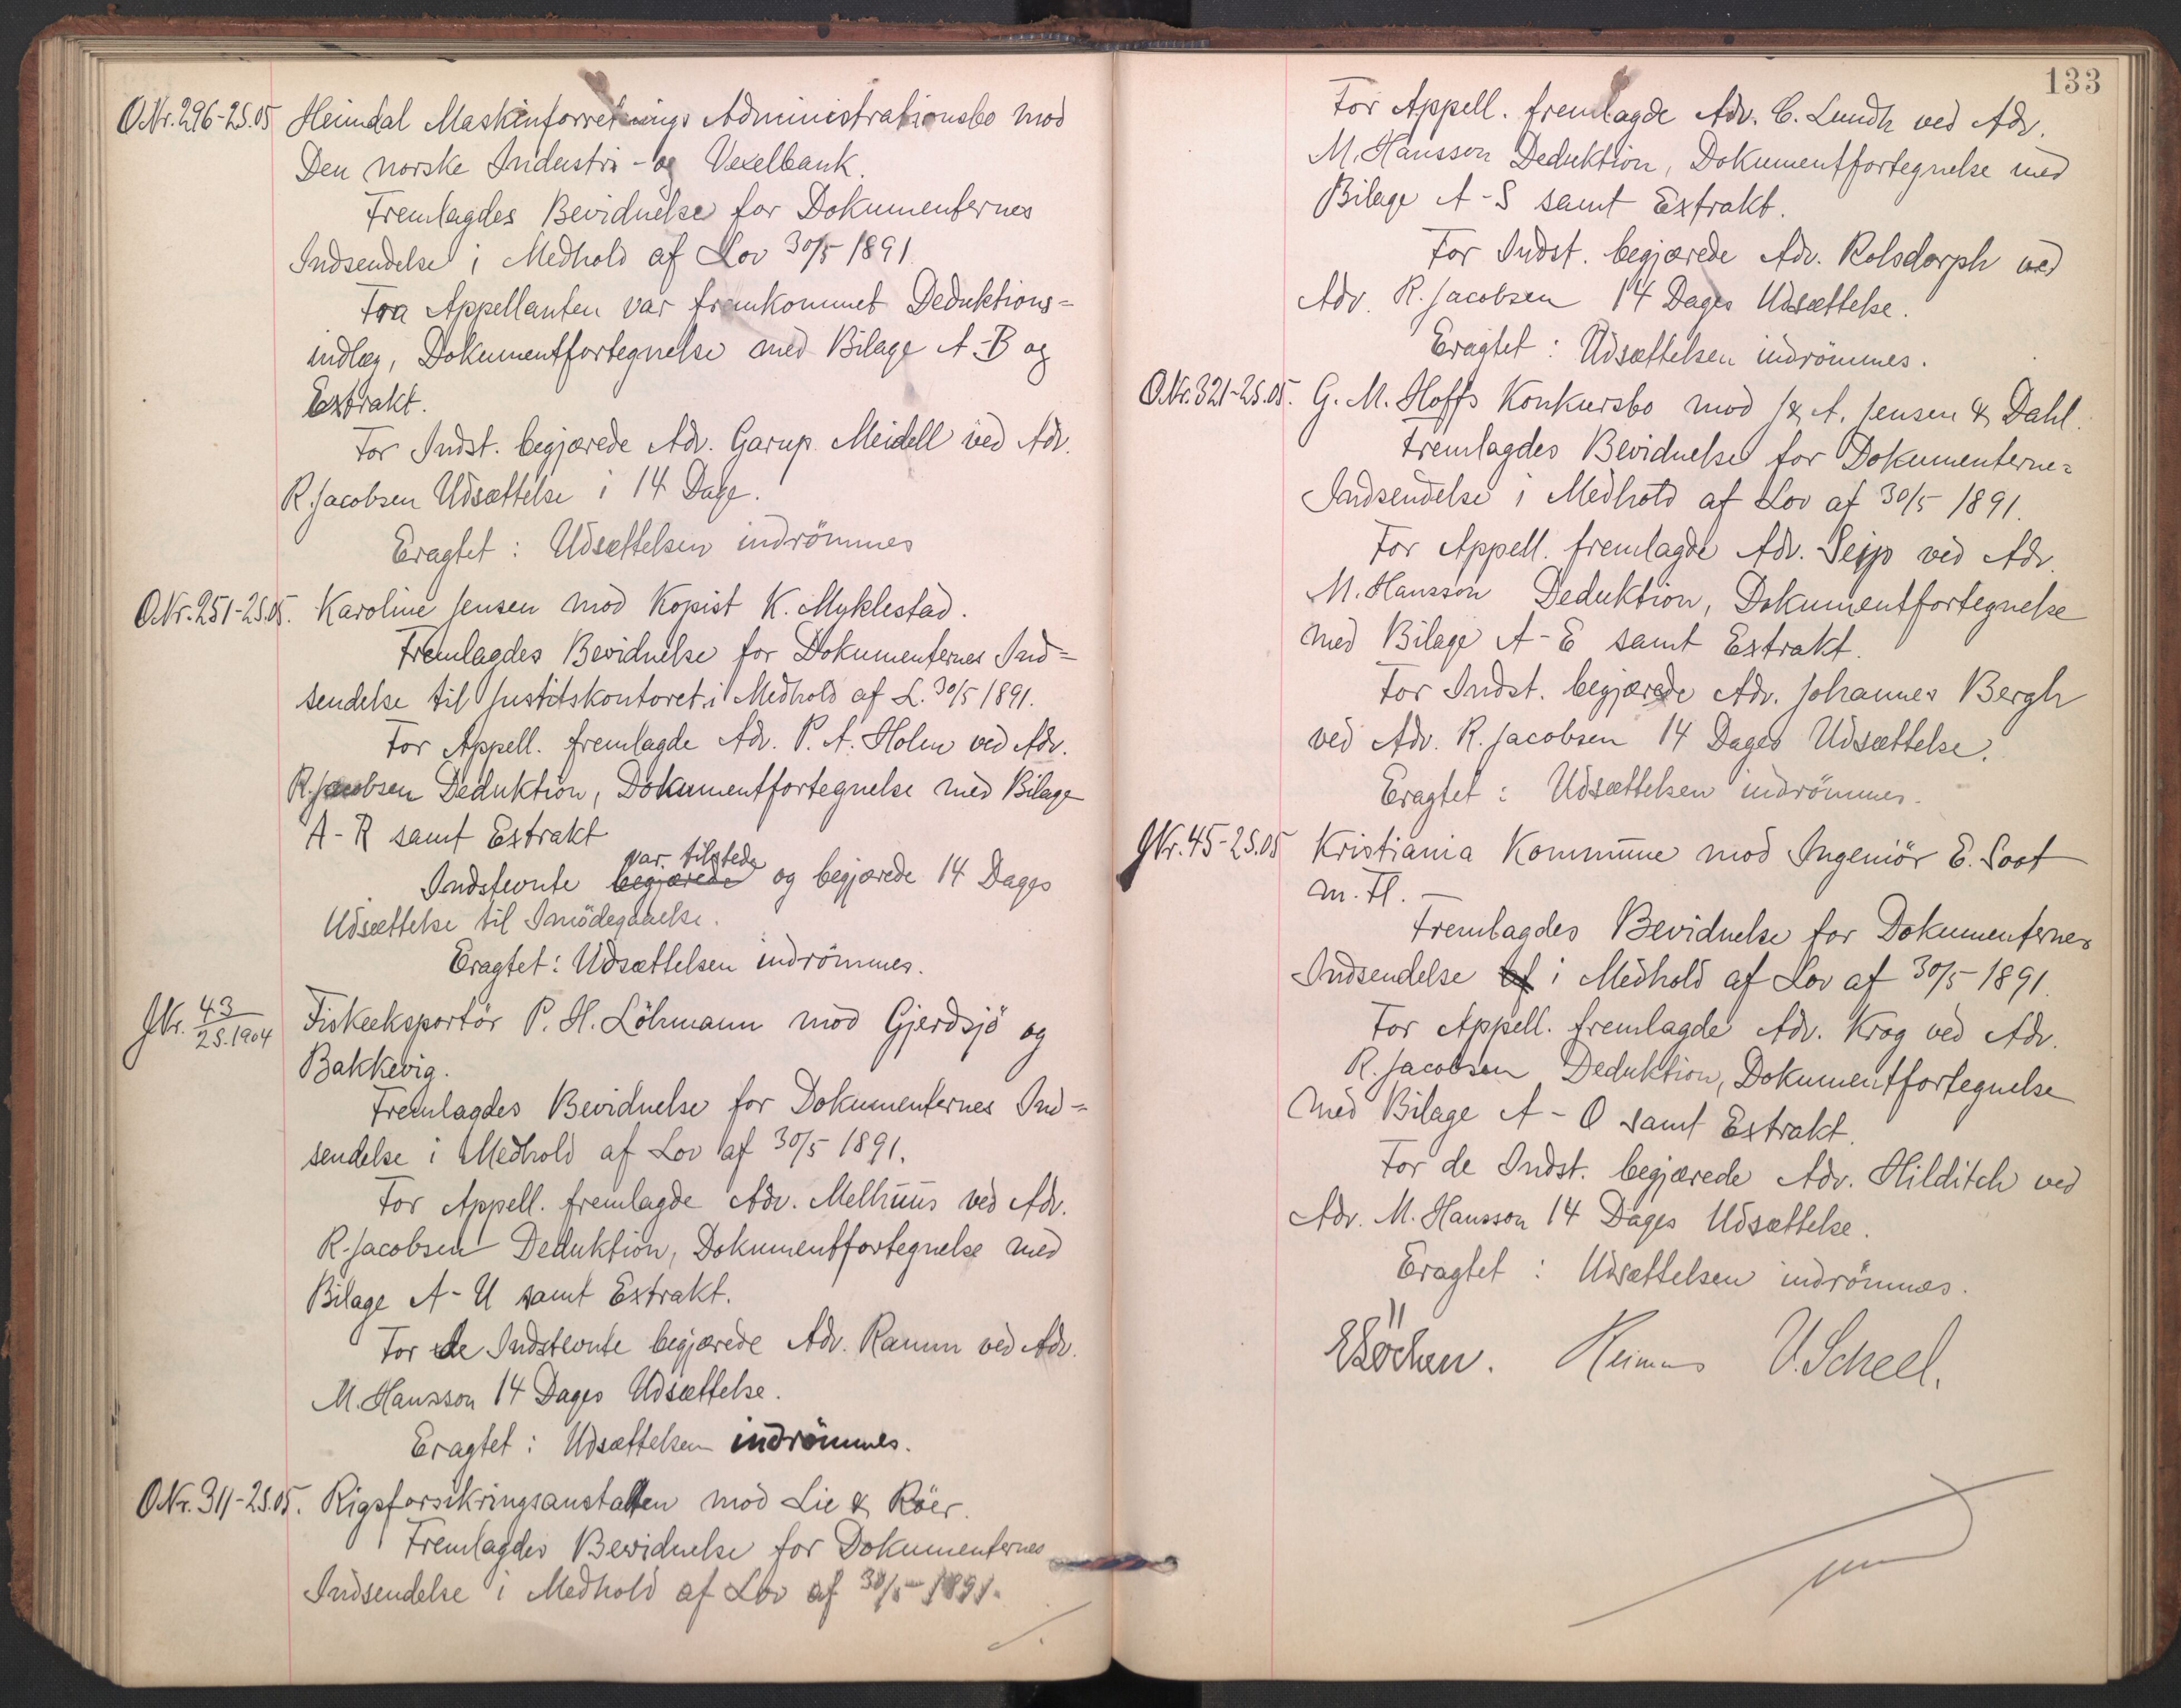 O.Nr. 296-2S.05 Heimdal Maskinforretnings Administrationsbo mod
Den norske Industri- og Vexelbank.
Fremlagdes Bevidnelse for Dokumenternes
Indsendelse i Medhold af Lov 30/5 1891.
Fra Appellanten var fremkommet Deduktions=
indlæg, Dokumentfortegnelse med Bilage A-B og
Extrakt.
For Indst. begjærede Adv. Garup Meidell ved Adv.
R. Jacobsen Udsættelse i 14 Dage.
Eragtet: Udsættelsen indrömmes
O.Nr. 251-2S.05. Karoline Jensen mod Kopist K. Myklestad.
Fremlagdes Bevidnelse for Dokumenternes Ind=
sendelse til Justitskontoret i Medhold af L. 30/5 1891.
For Appell. fremlagde Adv. P. A. Holm ved Adv.
R. Jacobsen Deduktion, Dokumentfortegnelse med Bilage
A-R samt Extrakt
var tilstede
Indstevnte begjærede og begjærede 14 Dages
Udsættelse til Imödegaaelse.
Eragtet: Udsættelsen indrömmes.
J.Nr. 43/2S.1904 Fiskeeksportör P. H. Löhmann mod Gjerdsjö og
Bakkevig.
Fremlagdes Bevidnelse for Dokumenternes Ind=
sendelse i Medhold af Lov af 30/5 1891.
For Appell. fremlagde Adv. Melhuus ved Adv.
R. Jacobsen Deduktion, Dokumentfortegnelse med
Bilage A-U samt Extrakt.
For de Indstevnte begjærede Adv. Ramm ved Adv.
M. Hansson 14 Dages Udsættelse.
Eragtet: Udsættelsen indrömmes.
O.Nr. 311-2S.05. Rigsforsikringsanstalten mod Lie & Röer.
Fremlagdes Bevidnelse for Dokumenternes
Indsendelse i Medhold af Lov af 30/5 1891.
133
For Appell. fremlagde Adv. C. Lundh ved Adv.
M. Hansson Deduktion, Dokumentfortegnelse med
Bilage A-S samt Extrakt.
For Indst. begjærede Adv. Rolsdorph ved
Adv. R. Jacobsen 14 Dages Udsættelse.
Eragtet: Udsættelsen indrömmes.
O.Nr. 321-2S.05. G. M. Hoffs Konkursbo mod J. & A. Jensen & Dahl.
Fremlagdes Bevidnelse for Dokumenterne=
Indsendelse i Medhold af Lov af 30/5 1891.
For Appell. fremlagde Adv. Seip ved Adv.
M. Hansson Deduktion, Dokumentfortegnelse
med Bilage A-E samt Extrakt.
For Indst. begjærede Adv. Johannes Bergh
ved Adv. R. Jacobsen 14 Dages Udsættelse.
Eragtet: Udsættelsen indrömmes.
J.Nr. 45-2S.05 Kristiania Kommune mod Ingeniör E. Soot
m. Fl.
Fremlagdes Bevidnelse for Dokumenternes
Indsendelse af i Medhold af Lov af 30/5 1891.
For Appell. fremlagde Adv. Krog ved Adv.
R. Jacobsen Deduktion, Dokumentfortegnelse
med Bilage A-O samt Extrakt.
For de Indst. begjærede Adv. Hilditch ved
Adv. M. Hansson 14 Dages Udsættelse.
Eragtet: Udsættelsen indrömmes.
V. Scheel.